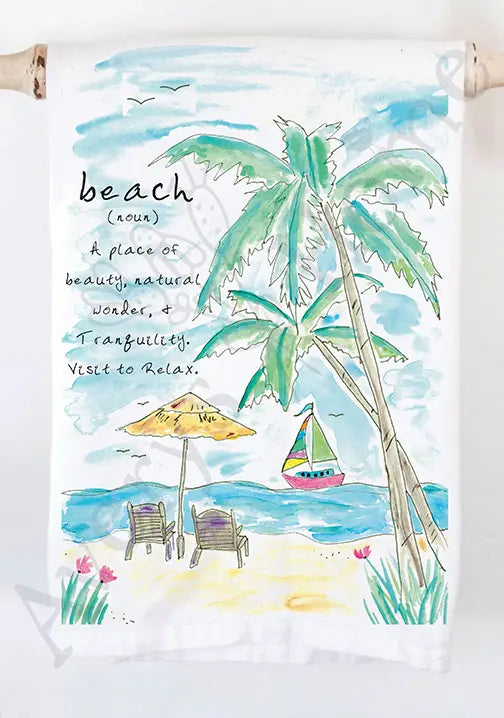 beach
(noun)
A place of
beauty, natural
wonder, &
Tranquility.
Visit to Relax.